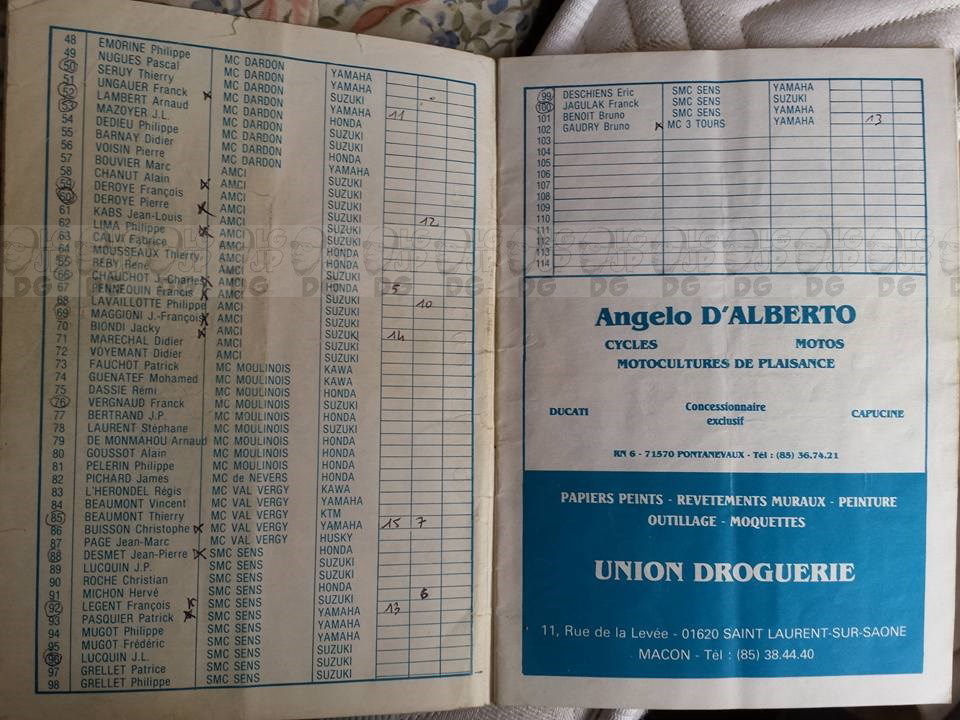 48 EMORINE Philippe MC DARDON YAMAHA
49 NUGUES Pascal MC DARDON YAMAHA
50 SERUY Thierry MC DARDON SUZUKI
51 UNGAUER Franck x MC DARDON YAMAHA 11
52 LAMBERT Arnaud MC DARDON HONDA
53 MAZOYER J.L. MC DARDON SUZUKI
54 DEDIEU Philippe MC DARDON SUZUKI
55 BARNAY Didier MC DARDON HONDA
56 VOISIN Pierre MC DARDON YAMAHA
57 BOUVIER Marc MC DARDON SUZUKI
58 CHANUT Alain AMCI SUZUKI
59 DEROYE François x AMCI SUZUKI
60 DEROYE Pierre x AMCI SUZUKI 12
61 KABS Jean-Louis AMCI SUZUKI
62 LIMA Philippe x AMCI SUZUKI
63 CALVI Fabrice AMCI HONDA
64 MOUSSEAUX Thierry AMCI HONDA
65 REBY René AMCI SUZUKI
66 CHAUCHOT J-Charles x AMCI HONDA 5
67 PENNEQUIN Francis x AMCI SUZUKI 10
68 LAVAILLOTTE Philippe AMCI SUZUKI
69 MAGGIONI J.-François x AMCI SUZUKI
70 BIONDI Jacky x AMCI SUZUKI 14
71 MARECHAL Didier AMCI SUZUKI
72 VOYEMANT Didier AMCI SUZUKI
73 FAUCHOT Patrick MC MOULINOIS KAWA
74 GUENATEF Mohamed MC MOULINOIS KAWA
75 DASSIE Rémi MC MOULINOIS HONDA
76 VERGNAUD Franck MC MOULINOIS SUZUKI
77 BERTRAND J.P. MC MOULINOIS HONDA
78 LAURENT Stéphane MC MOULINOIS SUZUKI
79 DE MONMAHOU Arnaud MC MOULINOIS HONDA
80 GOUSSOT Alain MC MOULINOIS HONDA
81 PELERIN Philippe MC MOULINOIS HONDA
82 PICHARD James MC de NEVERS HONDA
83 L'HERONDEL Régis MC VAL VERGY KAWA
84 BEAUMONT Vincent MC VAL VERGY YAMAHA
85 BEAUMONT Thierry MC VAL VERGY KTM
86 BUISSON Christophe x MC VAL VERGY YAMAHA 15 7
87 PAGE Jean-Marc MC VAL VERGY HUSKY
88 DESMET Jean-Pierre x SMC SENS HONDA
89 LUCQUIN J.P. SMC SENS SUZUKI
90 ROCHE Christian SMC SENS SUZUKI
91 MICHON Hervé SMC SENS HONDA 6
92 LEGENT François x SMC SENS SUZUKI
93 PASQUIER Patrick x SMC SENS YAMAHA 13
94 MUGOT Philippe SMC SENS YAMAHA
95 MUGOT Frédéric SMC SENS SUZUKI
96 LUCQUIN J.L. SMC SENS SUZUKI
97 GRELLET Patrice SMC SENS SUZUKI
98 GRELLET Philippe SMC SENS SUZUKI
99 DESCHIENS Eric SMC SENS YAMAHA
100 JAGULAK Franck SMC SENS SUZUKI
101 BENOIT Bruno SMC SENS YAMAHA
102 GAUDRY Bruno x MC 3 TOURS YAMAHA 13
103
104
105
106
107
108
109
110
111
112
113
114
Angelo D'ALBERTO
CYCLES MOTOS
MOTOCULTURES DE PLAISANCE
DUCATI Concessionnaire exclusif CAPUCINE
RN 6 - 71570 PONTANEVAUX - Tél : (85) 36.74.21
PAPIERS PEINTS - REVETEMENTS MURAUX - PEINTURE
OUTILLAGE - MOQUETTES
UNION DROGUERIE
11, Rue de la Levée - 01620 SAINT LAURENT-SUR-SAONE
MACON - Tél : (85) 38.44.40